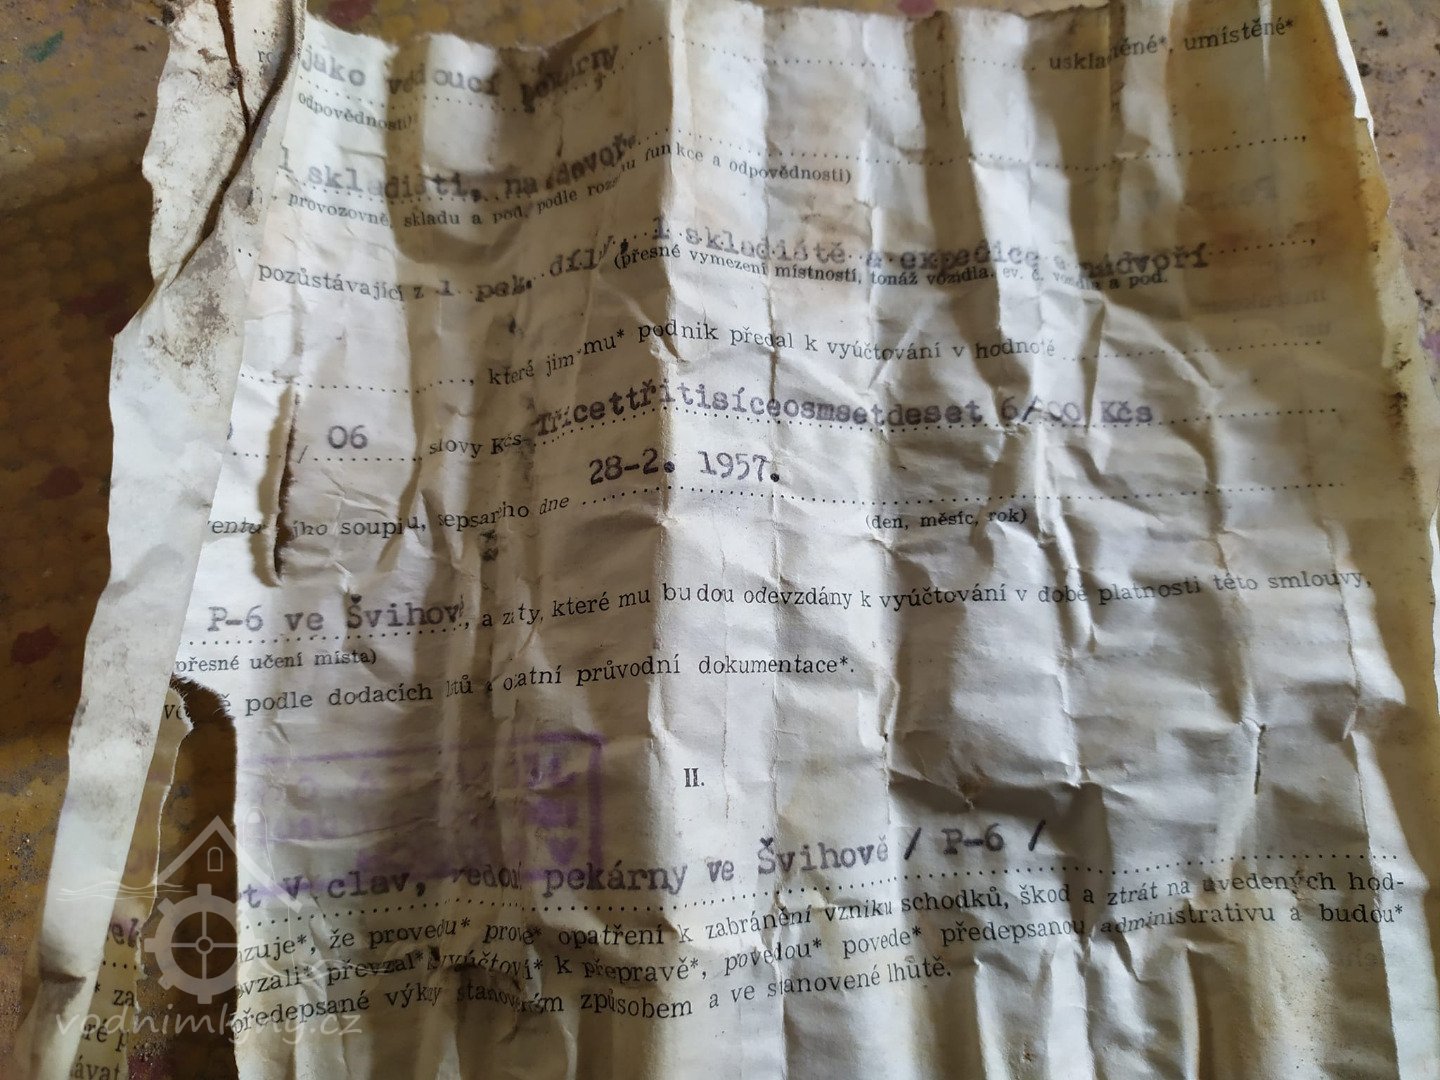 jako vedoucí pekárny
uskladněné*, umístěné*
odpovědnosti)
1 skladišti, na dvoře
provozovně, skladu a pod. podle rozsahu funkce a odpovědnosti)
pozůstávající z 1 pek. díly, 1 skladiště a expedice a nádvoří
(přesné vymezení místností, tonáž vozidla, ev. č. vozidla a pod.
, které jim-mu* podnik předal k vyúčtování v hodnotě
/ 06 slovy Kčs Třicettřitisíceosmsetdeset 6/00 Kčs
ího soupisu, sepsaného dne 28-2. 1957.
(den, měsíc, rok)
P-6 ve Švihově, a zaty, které mu budou odevzdány k vyúčtování v době platnosti této smlouvy,
přesné určení místa)
podle dodacích listů a ostatní průvodní dokumentace*.
II.
Václav, vedoucí pekárny ve Švihově / P-6 /
azuje*, že provedu* prove* opatření k zabránění vzniku schodků, škod a ztrát na uvedených hod-
převzal* vyúčtoví* k přepravě*, povedou* povede* předepsanou administrativu a budou*
předepsané výkazy stanoveným způsobem a ve stanovené lhůtě.
vodnimlyny.cz